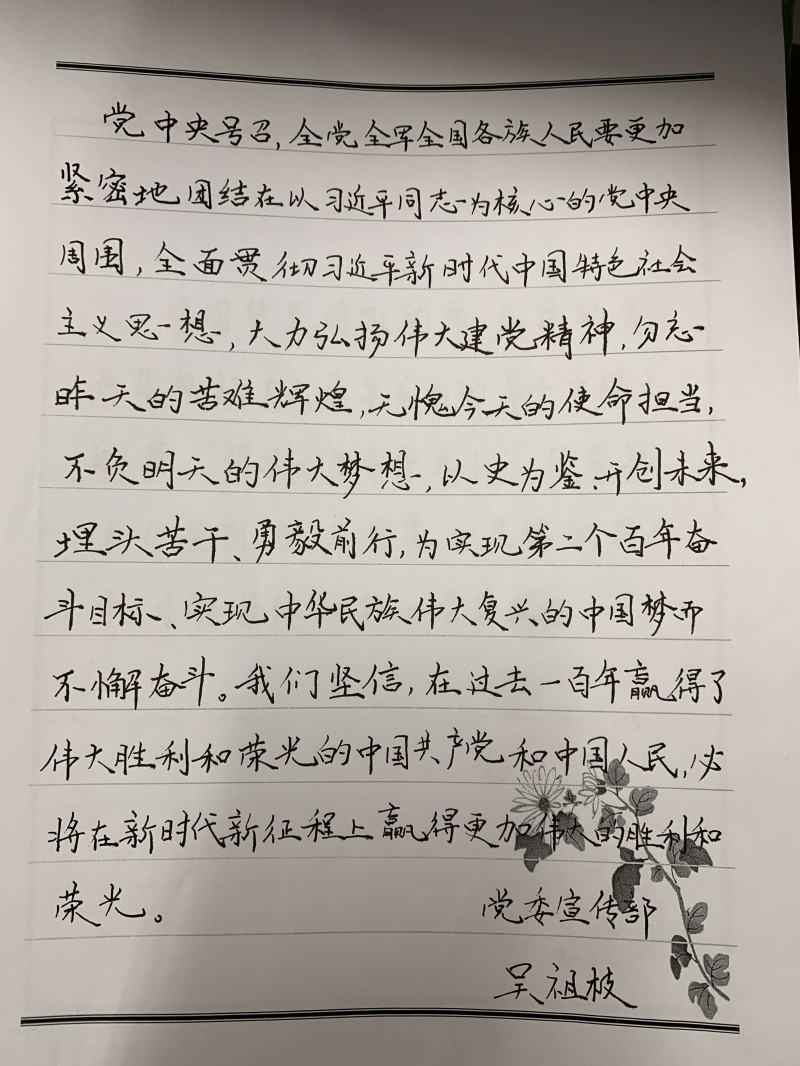 党中央号召,全党全军全国各族人民要更加
紧密地团结在以习近平同志为核心的党中央
周围,全面贯彻习近平新时代中国特色社会
主义思想,大力弘扬伟大建党精神,勿忘
昨天的苦难辉煌,无愧今天的使命担当,
不负明天的伟大梦想,以史为鉴、开创未来,
埋头苦干、勇毅前行,为实现第二个百年奋
斗目标、实现中华民族伟大复兴的中国梦而
不懈奋斗。我们坚信,在过去一百年赢得了
伟大胜利和荣光的中国共产党和中国人民,必
将在新时代新征程上赢得更加伟大的胜利和
荣光。 党委宣传部
吴祖枝